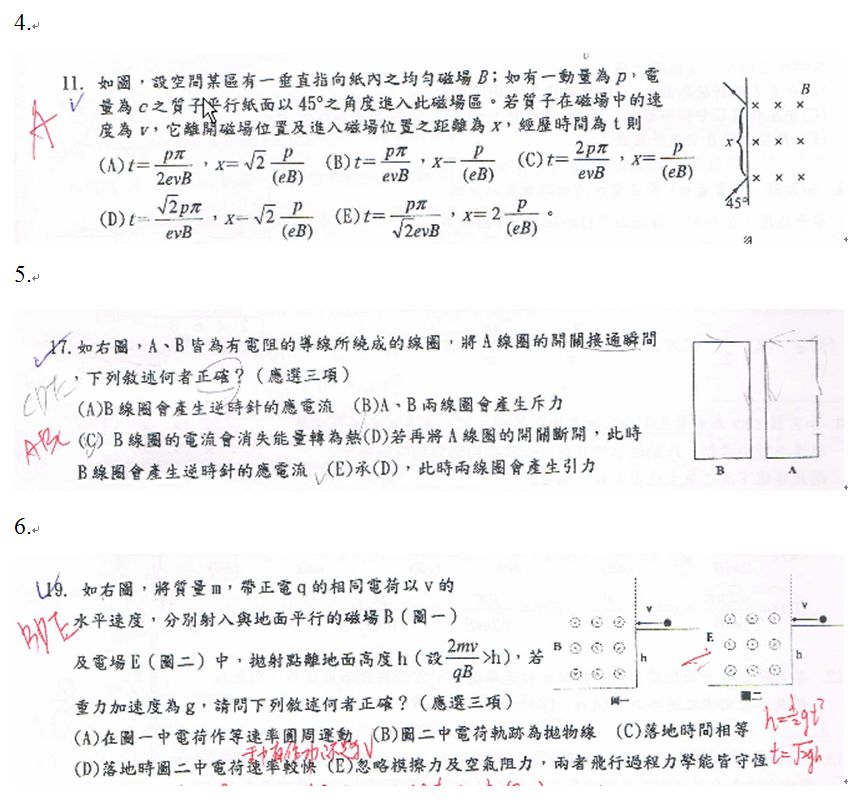 4.
11. 如圖，設空間某區有一垂直指向紙內之均勻磁場B；如有一動量為p，電
量為c之質子平行紙面以45°之角度進入此磁場區。若質子在磁場中的速
度為v，它離開磁場位置及進入磁場位置之距離為x，經歷時間為t則
(A) t= pπ/2evB ，x= √2 p/(eB) (B) t= pπ/evB ，x= p/(eB) (C) t= 2pπ/evB ，x= p/(eB)
(D) t= √2pπ/evB ，x= √2 p/(eB) (E) t= pπ/√2evB ，x= 2 p/(eB) 。
A
B
x
45°
5.
17. 如右圖，A、B皆為有電阻的導線所繞成的線圈，將A線圈的開關接通瞬間
，下列敘述何者正確？（應選三項）
(A)B線圈會產生逆時針的應電流 (B)A、B兩線圈會產生斥力
(C) B線圈的電流會消失能量轉為熱(D)若再將A線圈的開關斷開，此時
B線圈會產生逆時針的應電流 (E)承(D)，此時兩線圈會產生引力
B A
6.
19. 如右圖，將質量m，帶正電q的相同電荷以v的
水平速度，分別射入與地面平行的磁場B（圖一）
及電場E（圖二）中，拋射點離地面高度h（設 2mv/qB >h)，若
重力加速度為g，請問下列敘述何者正確？（應選三項）
(A)在圖一中電荷作等速率圓周運動 (B)圖二中電荷軌跡為拋物線 (C)落地時間相等
(D)落地時圖二中電荷速率較快 (E)忽略模擦力及空氣阻力，兩者飛行過程力學能皆守恆
BDE
B
v
h
圖一
E
v
h
圖二
h=½gt²